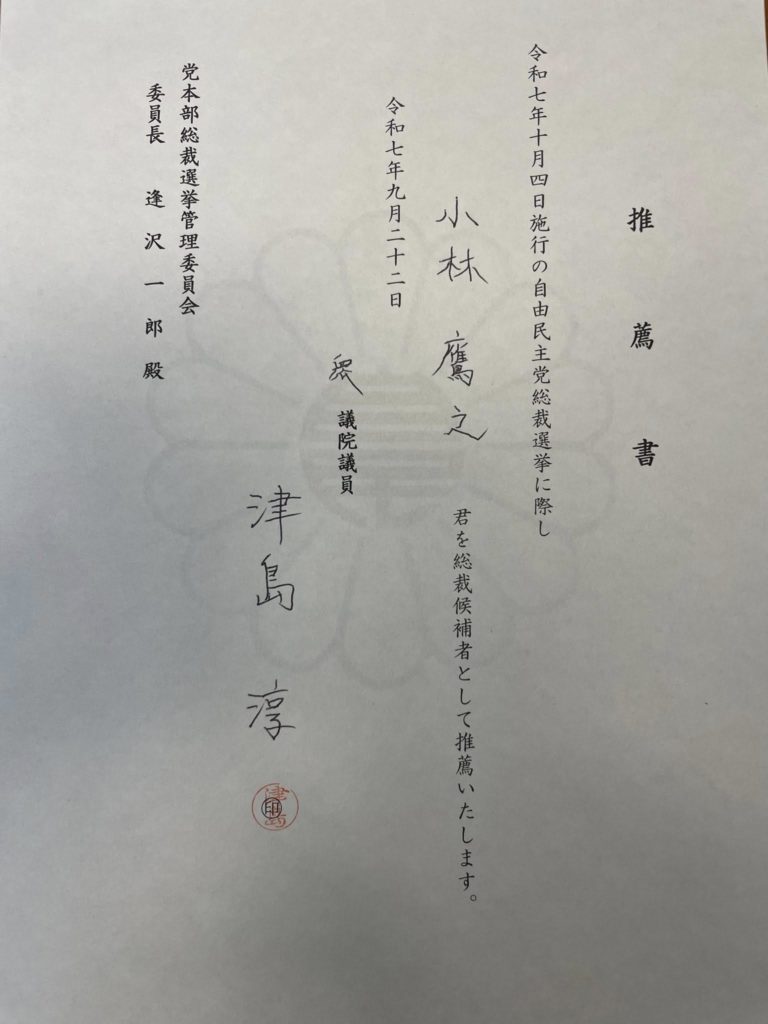 推薦書
令和七年十月四日施行の自由民主党総裁選挙に際し
小林 鷹之 君を総裁候補者として推薦いたします。
令和七年九月二十二日
衆 議院議員
津島 淳 印
津島
党本部総裁選挙管理委員会
委員長 逢沢一郎殿